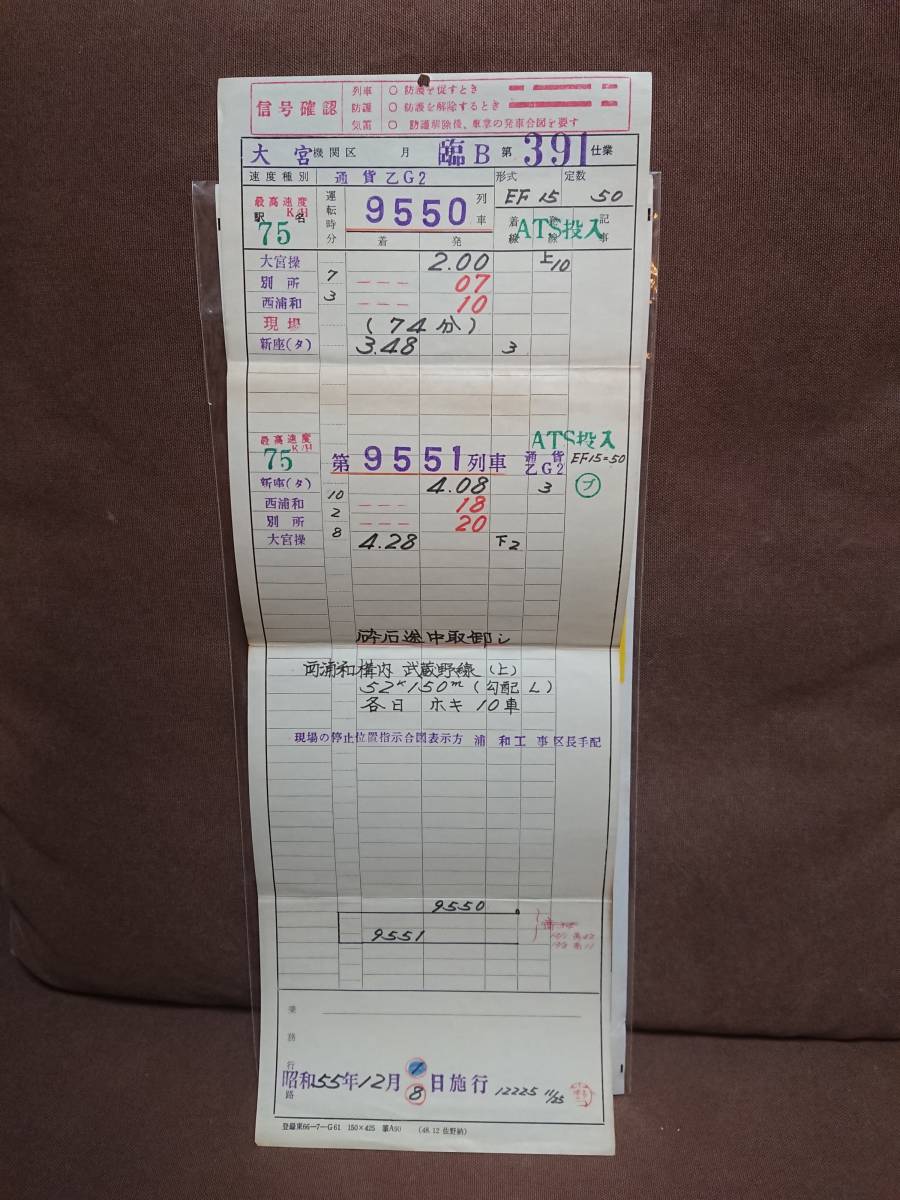 信号確認
列車 ○ 防護を促すとき
防護 ○ 防護を解除するとき
気笛 ○ 防護解除後、車掌の発車合図を要す
大宮機関区 月 臨B 第391仕業
速度種別 通貨乙G2 形式 定数
EF15 50
最高速度 K/H
75
駅名 運転時分 9550 列車
着 発 着線 発線 記事
ATS投入
大宮操 2.00 上10
7
別所 --- 07
3
西浦和 --- 10
現場 (74分)
新座(タ) 3.48 3
最高速度 K/H
75
第9551列車 通貨乙G2
ATS投入
EF15=50
ブ
新座(タ) 4.08 3
10
西浦和 --- 18
2
別所 --- 20
8
大宮操 4.28 下2
砕石途中取卸し
西浦和構内 武蔵野線(上)
52K150m(勾配 L)
各日 ホキ 10車
現場の停止位置指示合図表示方 浦和工事区長手配
9550
9551
乗務行路
昭和55年12月 7 8 日施行 12225 11/25
登録東66-7-G61 150×425 筆A50 (48.12 佐野納)